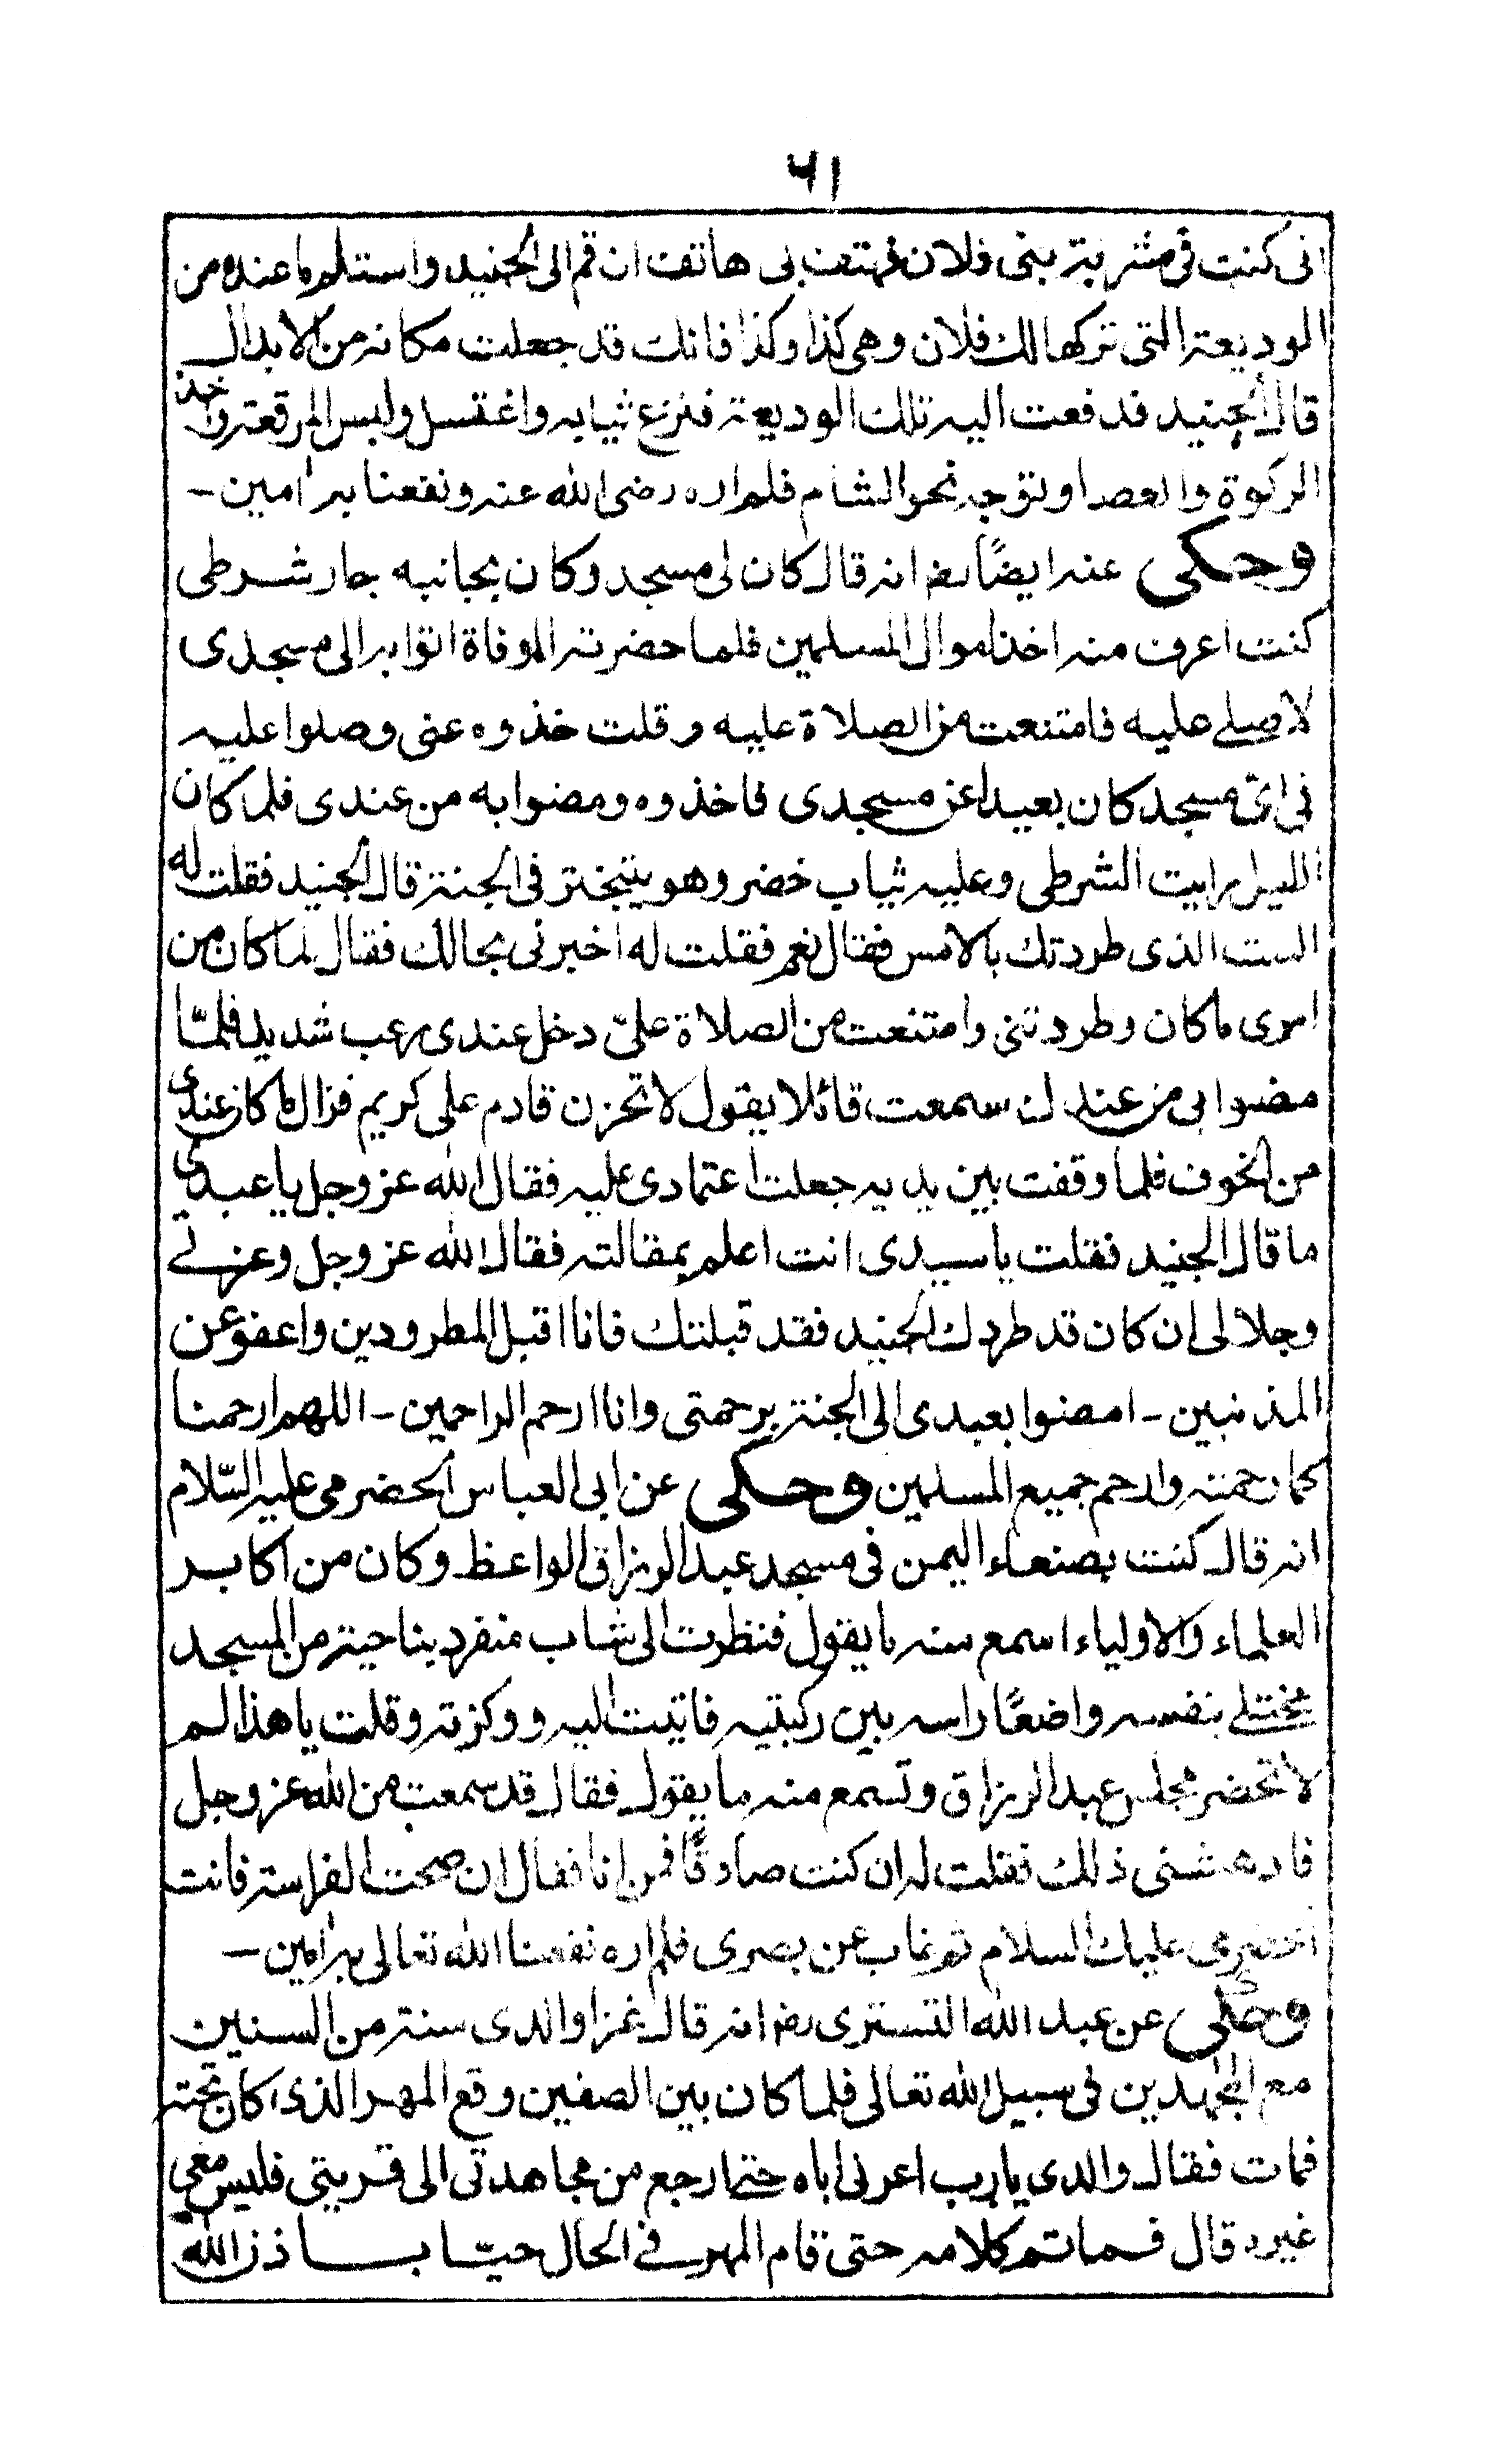 ٦١
انى كنت فى مشربة بنى فلان فهتف بى هاتف ان قم الى الجنيد واستلم ما عنده من
الوديعة التى تركها لك فلان وهى كذا وكذا فانك قد جعلت مكانه من الابدال
قال الجنيد فدفعت اليه تلك الوديعة فنزع ثيابه واغتسل ولبس المرقعة واخذ
الركوة والعصا وتوجه نحو الشام فلم اره رضى الله عنه ونفعنا به امين -
وحكى عنه ايضًا رضـ انه قال كان لى مسجد وكان بجانبه جار شرطى
كنت اعرف منه اخذ اموال المسلمين فلما حضرته الوفاة اتوا به الى مسجدى
لاصلے عليه فامتنعت من الصلاة عليه وقلت خذوه عنى وصلوا عليه
فى اى مسجد كان بعيدا عن مسجدى فاخذوه ومضوا به من عندى فلما كان
الليل رايت الشرطى وعليه ثياب خضر وهو يتبختر فى الجنة قال الجنيد فقلت له
الست الذى طردتك بالامس فقال نعم فقلت له اخبرنى بحالك فقال لما كان من
امرى ما كان وطردتنى وامتنعت من الصلاة علىّ دخل عندى رعب شديد فلمّا
مضوا بى من عندك سمعت قائلا يقول لا تحزن قادم على كريم فزال ما كان عندى
من الخوف فلما وقفت بين يديه جعلت اعتمادى عليه فقال الله عز وجل يا عبدى
ما قال الجنيد فقلت يا سيدى انت اعلم بمقالته فقال الله عز وجل وعزتے
وجلالى ان كان قد طردك الجنيد فقد قبلتك فانا اقبل المطرودين واعفو عن
المذنبين - امضوا بعبدى الى الجنة برحمتى وانا ارحم الراحمين - اللهم ارحمنا
كما رحمته وارحم جميع المسلمين وحكى عن ابى العباس الحضرمى عليه السّلام
انه قال كنت بصنعاء اليمن فى مسجد عبد الرزاق الواعظ وكان من اكابر
العلماء والاولياء اسمع منه ما يقول فنظرت الى شاب منفرد بناحية من المسجد
مختلے بنفسه واضعًا راسه بين ركبتيه فاتيت اليه ووكزته وقلت يا هذا لم
لا تحضر مجلس عبد الرزاق وتسمع منه ما يقول فقال قد سمعت من الله عز وجل
فادهشنى ذلك فقلت له ان كنت صادقًا فمن انا فقال ان صحت الفراسة فانت
الحضرمى عليك السلام ثم غاب عن بصرى فلم اره نفعنا الله تعالى به امين -
وحكى عن عبد الله التسترى رضـ انه قال غزا والدى سنة من السنين
مع المجهدين فى سبيل الله تعالى فلما كان بين الصفين وقع المهر الذى كان تحته
فمات فقال والدى يا رب اعرنى اياه حتے ارجع من مجاهدتى الى قريتى فليس معى
غيره قال فما تم كلامه حتى قام المهر فے الحال حيّا باذن الله